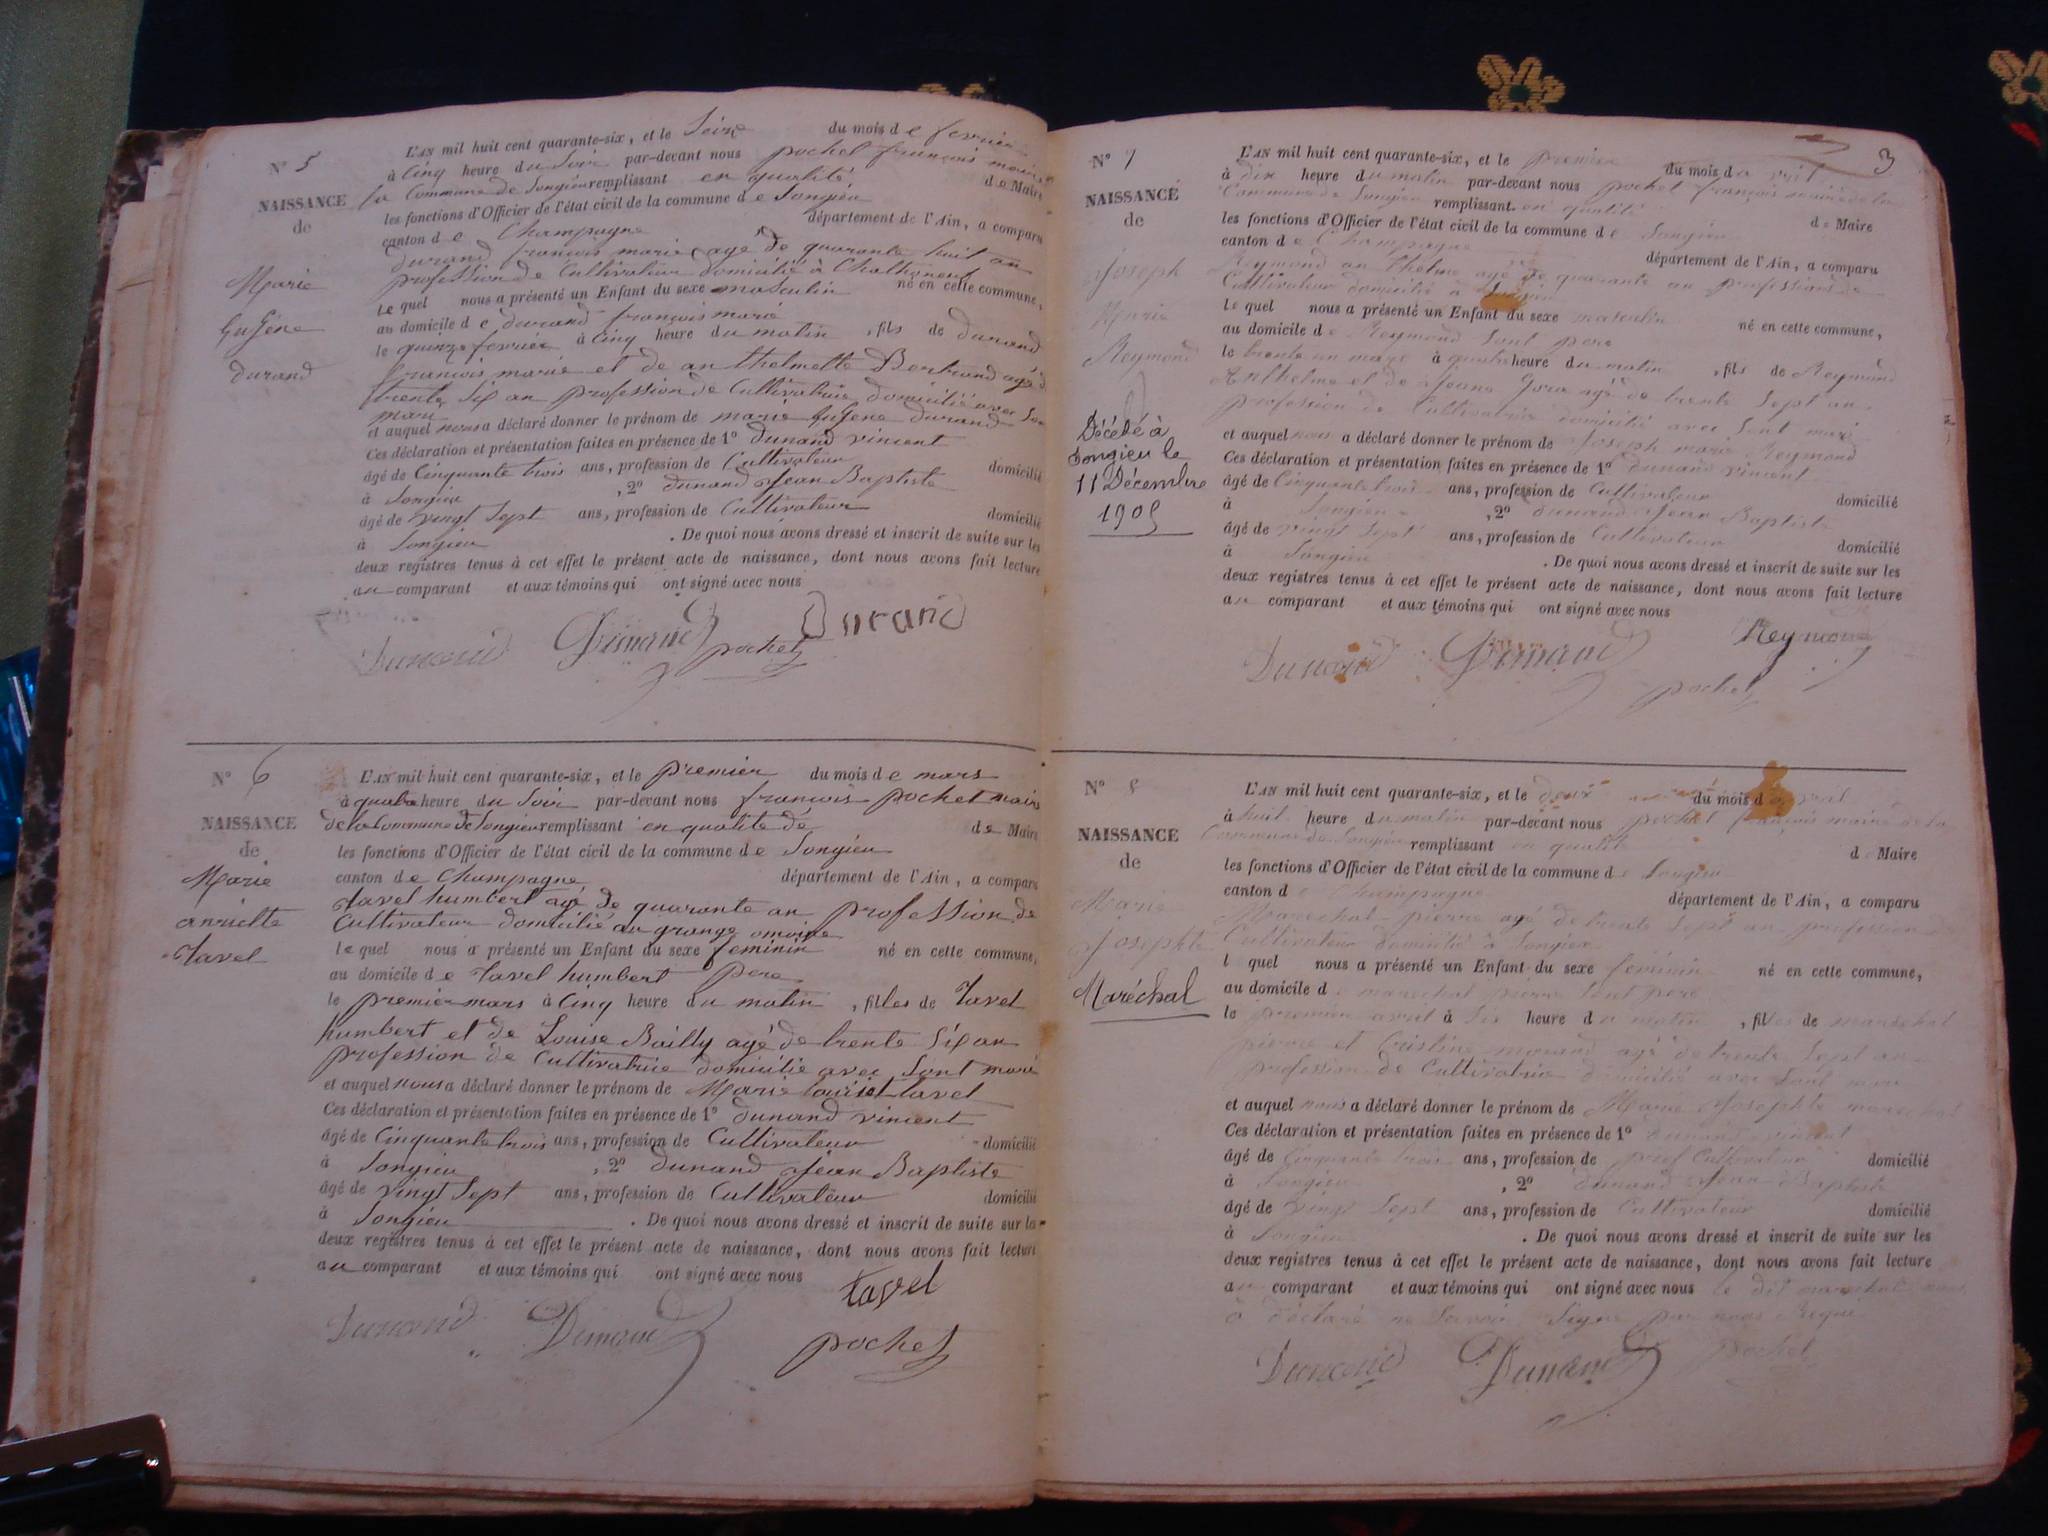 N° 5
NAISSANCE
de
Marie
Eugène
durand
L'AN mil huit cent quarante-six, et le Seize du mois de fevrier
à Cinq heure du Soir par-devant nous pochet françois maire
la Commune de Songieu remplissant en qualité de Maire
les fonctions d'Officier de l'état civil de la commune de Songieu
canton de Champagne département de l'Ain, a comparu
durand françois marie agé de quarante huit an
profession de Cultivateur domicilié à
Le quel nous a présenté un Enfant du sexe masculin né en cette commune,
au domicile de durand françois marie
le quinze fevrier à Cinq heure du matin, fils de durand
françois marie et de anthelmette Bertrand agé de
trente Six an profession de Cultivatrice domicilié avec Son
mari
et auquel nous a déclaré donner le prénom de marie Eugene durand
Ces déclaration et présentation faites en présence de 1° dunand vincent
âgé de Cinquante trois ans, profession de Cultivateur domicilié
à Songieu, 2° dunand Jean Baptiste
âgé de vingt Sept ans, profession de Cultivateur domicilié
à Songieu. De quoi nous avons dressé et inscrit de suite sur les
deux registres tenus à cet effet le présent acte de naissance, dont nous avons fait lecture
au comparant et aux témoins qui ont signé avec nous
Dunand Dunand pochet Durand
N° 6
NAISSANCE
de
Marie
anriette
Tavel
L'AN mil huit cent quarante-six, et le premier du mois de mars
à quatre heure du Soir par-devant nous francois pochet maire
de la Commune de Songieu remplissant en qualité de de Maire
les fonctions d'Officier de l'état civil de la commune de Songieu
canton de Champagne département de l'Ain, a comparu
tavel humbert agé de quarante an profession de
Cultivateur domicilié au grange
le quel nous a présenté un Enfant du sexe feminin né en cette commune,
au domicile de tavel humbert pere
le premier mars à Cinq heure du matin, filles de tavel
humbert et de Louise Bailly agé de trente Six an
profession de Cultivatrice domicilié avec Sont mari
et auquel nous a déclaré donner le prénom de Marie tavel
Ces déclaration et présentation faites en présence de 1° dunand vincent
âgé de Cinquante trois ans, profession de Cultivateur domicilié
à Songieu, 2° dunand Jean Baptiste
âgé de vingt Sept ans, profession de Cultivateur domicilié
à Songieu. De quoi nous avons dressé et inscrit de suite sur la
deux registres tenus à cet effet le présent acte de naissance, dont nous avons fait lecture
au comparant et aux témoins qui ont signé avec nous
tavel
Dunand Dunand pochet
3
N° 7
NAISSANCE
de
Joseph
Marie
Reymond
Décédé à
Songieu le
11 Décembre
1905
L'AN mil huit cent quarante-six, et le premier du mois d'avril
à dix heure du matin par-devant nous pochet françois maire de la
Commune de Songieu remplissant en qualité de Maire
les fonctions d'Officier de l'état civil de la commune de Songieu
canton de Champagne département de l'Ain, a comparu
Reymond anthelme agé de quarante an profession de
Cultivateur domicilié à Songieu
Le quel nous a présenté un Enfant du sexe masculin né en cette commune,
au domicile de Reymond Sont pere
le trente un mars à quatre heure du matin, fils de Reymond
Anthelme et de Jeane agé de trente Sept an
profession de Cultivatrice domicilié avec Sont mari
et auquel nous a déclaré donner le prénom de Joseph marie Reymond
Ces déclaration et présentation faites en présence de 1° dunand vincent
âgé de Cinquante trois ans, profession de Cultivateur domicilié
à Songieu, 2° dunand Jean Baptiste
âgé de vingt Sept ans, profession de Cultivateur domicilié
à Songieu. De quoi nous avons dressé et inscrit de suite sur les
deux registres tenus à cet effet le présent acte de naissance, dont nous avons fait lecture
au comparant et aux témoins qui ont signé avec nous
Dunand Dunand Reymond
pochet
N° 8
NAISSANCE
de
Marie
Josephte
Maréchal
L'AN mil huit cent quarante-six, et le deux du mois d'avril
à huit heure du matin par-devant nous pochet françois maire de la
Commune de Songieu remplissant en qualité d Maire
les fonctions d'Officier de l'état civil de la commune de Songieu
canton de Champagne département de l'Ain, a comparu
Marechal pierre agé de trente Sept an profession
Cultivateur domicilié à Songieu
l quel nous a présenté un Enfant du sexe feminin né en cette commune,
au domicile de marechal pierre Sont pere
le premier avril à Six heure du matin, filles de marechal
pierre et Cristine morand agé de trente Sept an
profession de Cultivatrice domicilié avec Sont mari
et auquel nous a déclaré donner le prénom de Marie Josephte marechal
Ces déclaration et présentation faites en présence de 1° dunand vincent
âgé de Cinquante trois ans, profession de Cultivateur domicilié
à Songieu, 2° dunand Jean Baptiste
âgé de vingt Sept ans, profession de Cultivateur domicilié
à Songieu. De quoi nous avons dressé et inscrit de suite sur les
deux registres tenus à cet effet le présent acte de naissance, dont nous avons fait lecture
au comparant et aux témoins qui ont signé avec nous le dit marechal nous
à déclaré ne Savoir Signe par nous Requi
Dunand Dunand pochet